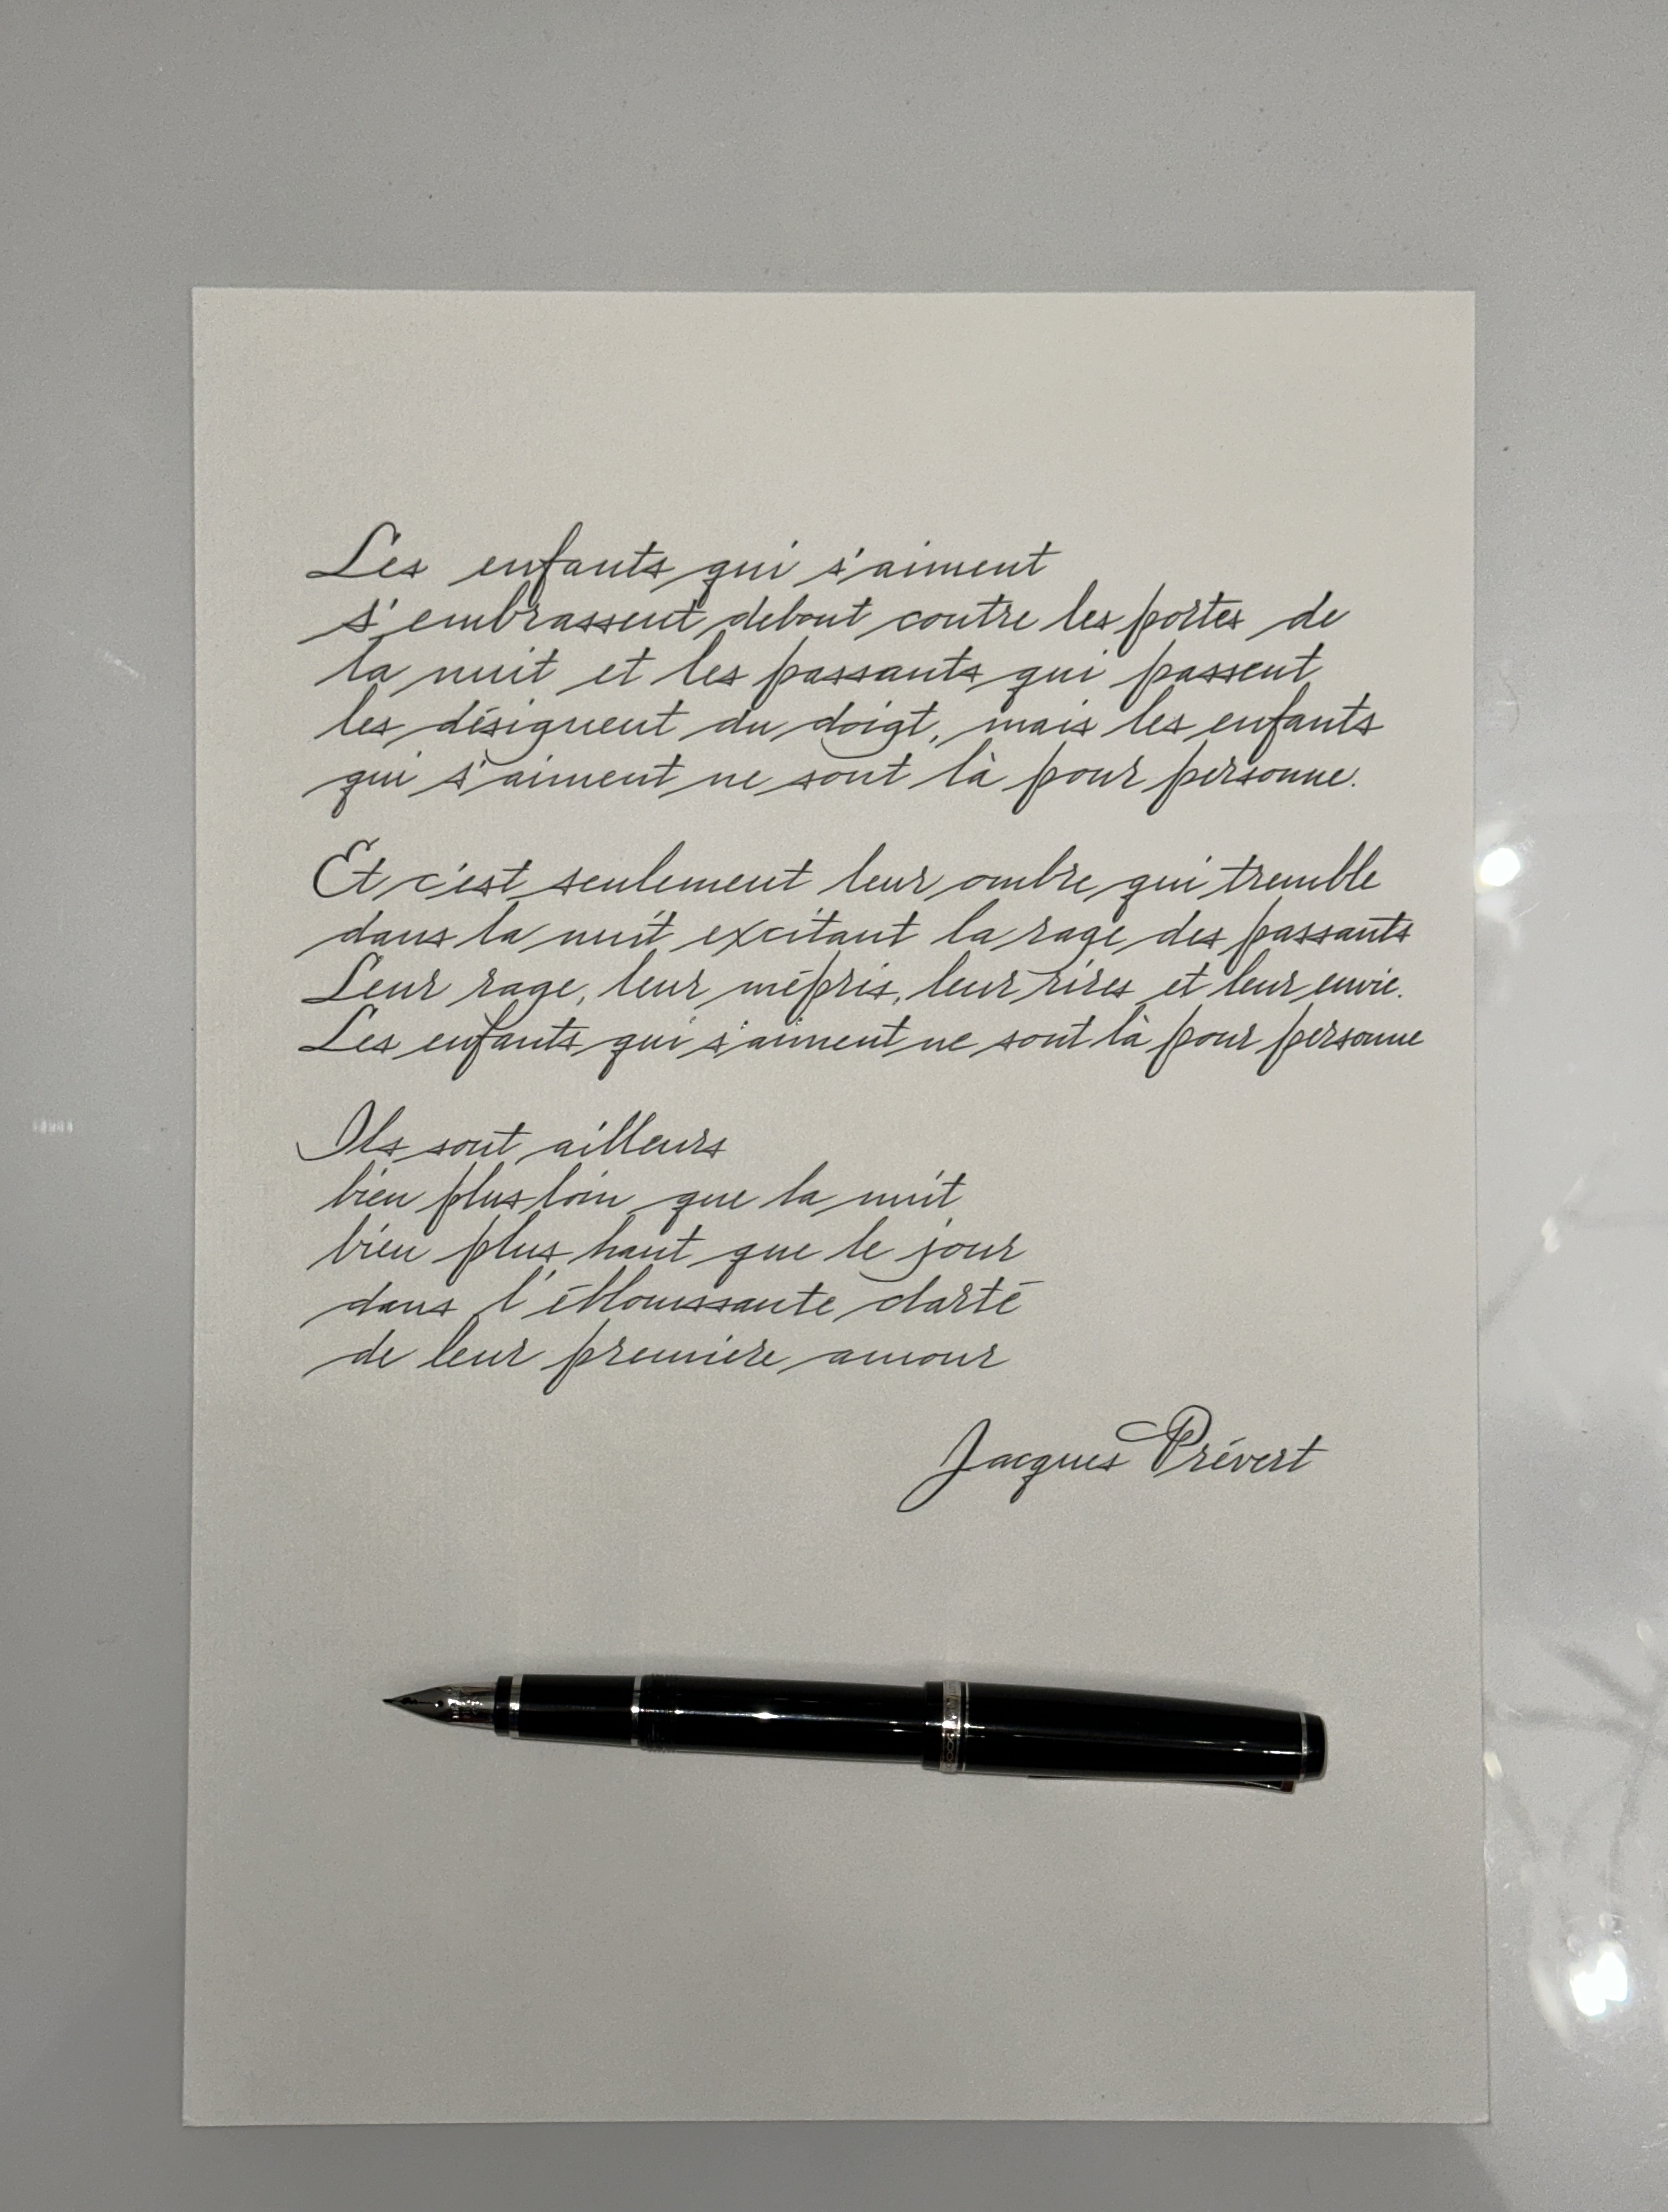 Les enfants qui s'aiment
s'embrassent debout contre les portes de
la nuit et les passants qui passent
les désignent du doigt, mais les enfants
qui s'aiment ne sont là pour personne.
Et c'est seulement leur ombre qui tremble
dans la nuit excitant la rage des passants
Leur rage, leur mépris, leur rires et leur envie.
Les enfants qui s'aiment ne sont là pour personne
Ils sont ailleurs
bien plus loin que la nuit
bien plus haut que le jour
dans l'éblouissante clarté
de leur premiere amour
Jacques Prévert